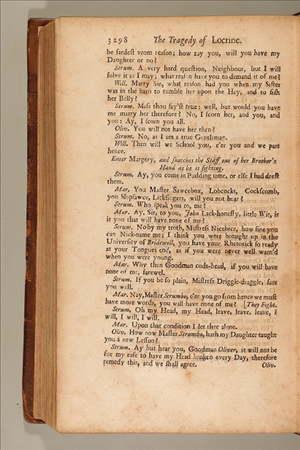 3298 The Tragedy of Locrine.
be fardest vrom reason; how zay you, will you have my
Daughter or no?
Strum. A very hard question, Neighbour, but I will
solve it as I may; what reason have you to demand it of me?
Will. Marry Sir, what reason had you when my Sister
was in the barn to tumble her upon the Hay, and to fish
her Belly?
Strum. Mass thou say'st true; well, but would you have
me marry her therefore? No, I scorn her, and you, and
you: Ay, I scorn you all.
Oliv. You will not have her then?
Strum. No, as I am a true Gentleman.
Will. Then will we School you, e'er you and we part
hence.
Enter Margery, and snatches the Staff out of her Brother's
Hand as he is fighting.
Strum. Ay, you come in Pudding time, or else I had drest
them.
Mar. You Master Saucebox, Lobcock, Cockscomb,
you Slopsauce, Lickfingers, will you not hear?
Strum. Who speak you to, me?
Mar. Ay, Sir, to you, John Lack-honesty, little Wit, is
it you that will have none of me?
Strum. No by my troth, Mistress Nicebice, how fine you
can Nick-name me; I think you were brought up in the
University of Bridewell, you have your Rhetorick so ready
at your Tongues end, as if you were never well warn'd
when you were young.
Mar. Why then Goodman cods-head, if you will have
none of me, farewel.
Strum. If you be so plain, Mistress Driggle-draggle, fare
you well.
Mar. Nay, Master Strumbo, e'er you go from hence we must
have more words, you will have none of me? [They Fight.
Strum. Oh my Head, my Head, leave, leave, leave, I
will, I will, I will.
Mar. Upon that condition I let thee alone.
Oliv. How now Master Strumbo, hath my Daughter taught
you a new Lesson?
Strum. Ay but hear you, Goodman Oliver, it will not be
for my ease to have my Head broken every Day, therefore
remedy this, and we shall agree.
Oliv.